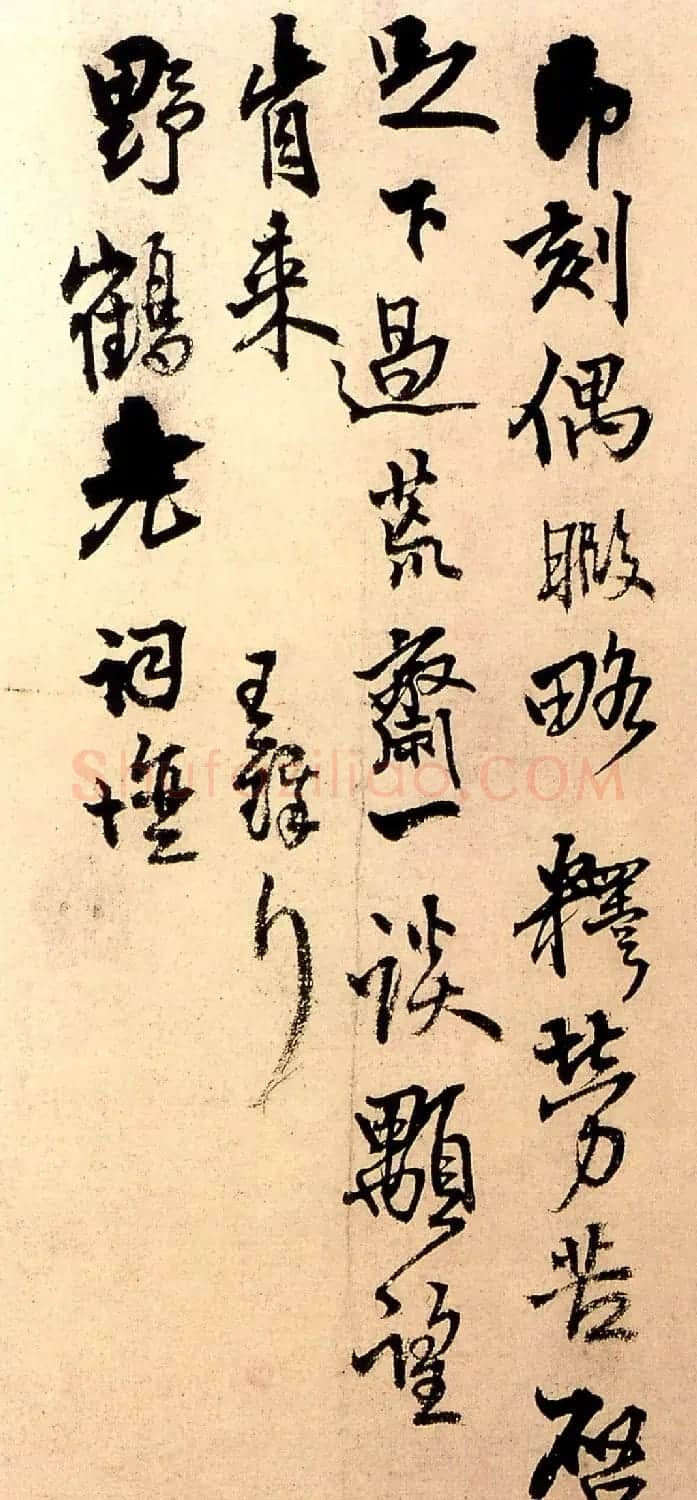 即刻偶暇略釋勞苦
足下過荒齋一談顒望
肯来
王鐸
野鶴老詞壇
Shufaziliao.COM